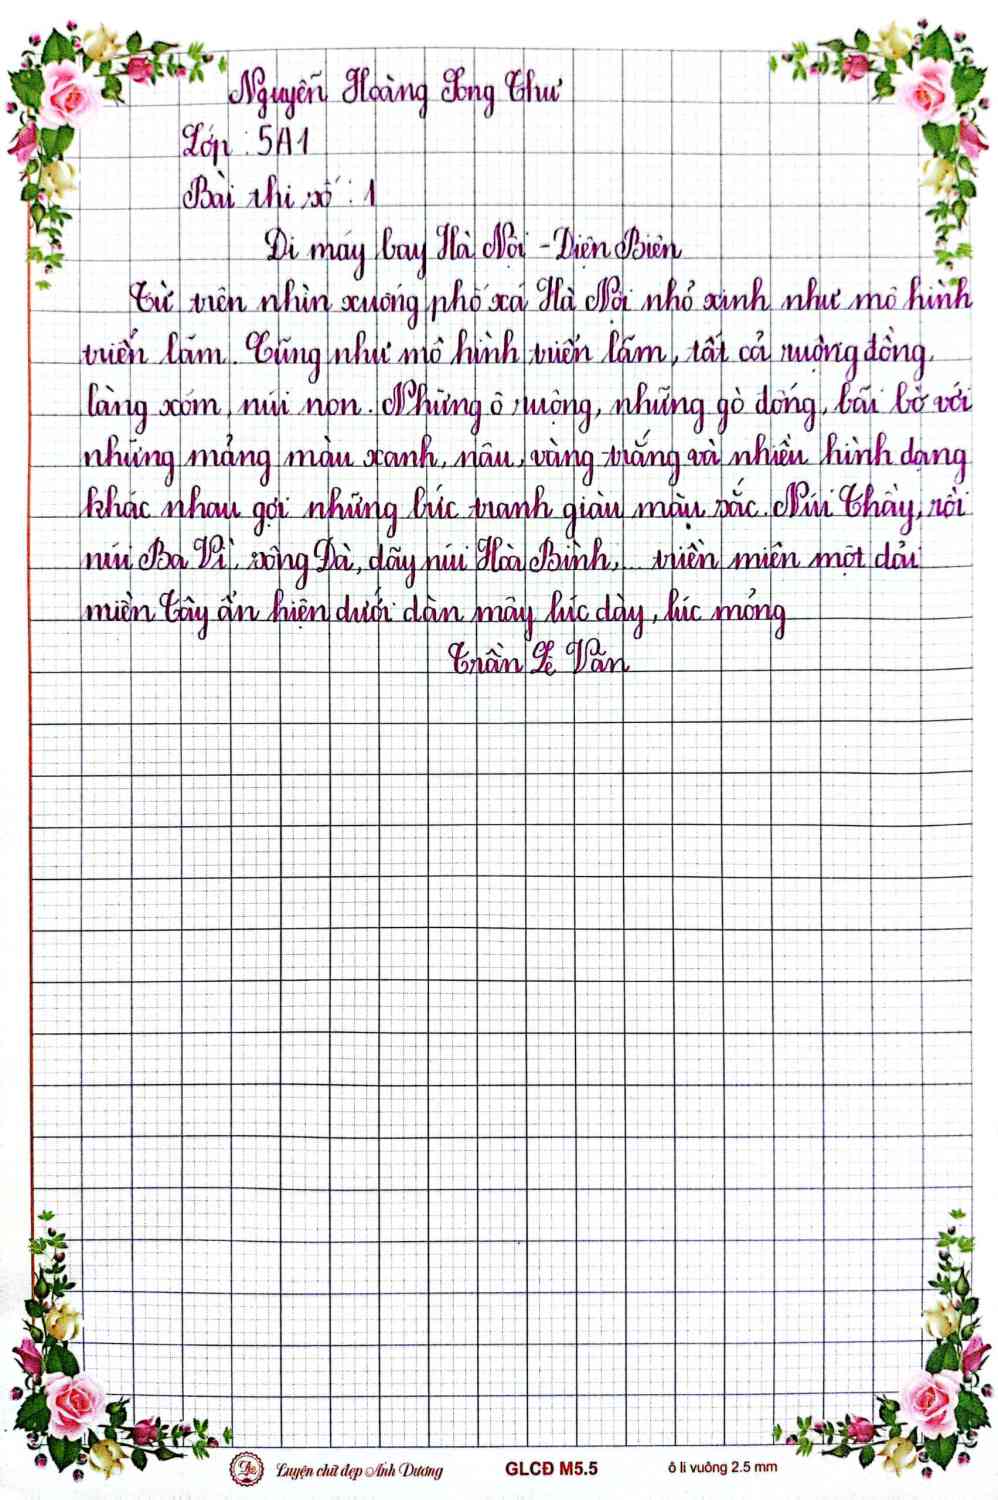 Nguyễn Hoàng Song Thư
Lớp : 5A1
Bài thi số : 1
Đi máy bay Hà Nội - Điện Biên
Từ trên nhìn xuống phố xá Hà Nội nhỏ xinh như mô hình
triển lãm. Cũng như mô hình triển lãm, tất cả ruộng đồng,
làng xóm, núi non. Những ô ruộng, những gò đống, bãi bờ với
những mảng màu xanh, nâu, vàng trắng và nhiều hình dạng
khác nhau gợi những bức tranh giàu màu sắc. Núi Thầy, rồi
núi Ba Vì, sông Đà, dãy núi Hoà Bình,... triền miên một dải
miền Tây ẩn hiện dưới dàn mây lúc dày, lúc mỏng
Trần Lê Văn
Luyện chữ đẹp Ánh Dương
GLCĐ M5.5
ô li vuông 2.5 mm